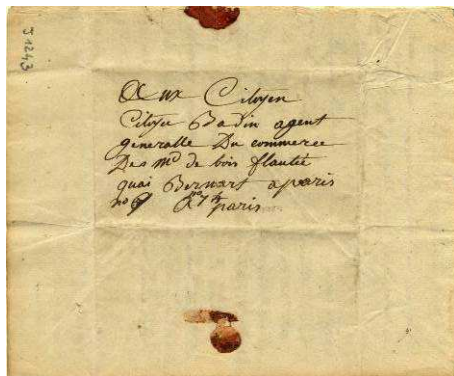 31243
Aux Citoyen
Citoye Badin agent
generalle Du commerce
Des md de bois flautée
quai Bernart a paris
no 6 paris